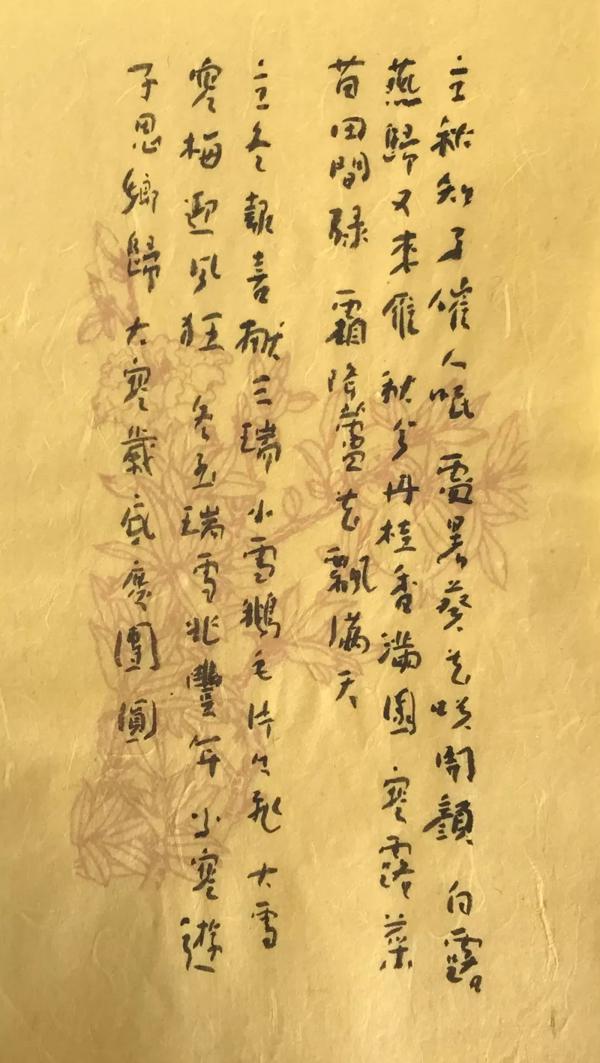 立秋知了催人眠 處暑葵花咲開顏 白露
燕歸又來雁 秋分丹桂香滿園 寒露菜
苗田間綠 霜降蘆花飄滿天
立冬報喜献三瑞 小雪鵝毛片々飛 大雪
寒梅迎風狂 冬至瑞雪兆豐年 小寒遊
子思鄉歸 大寒歲底慶團圓